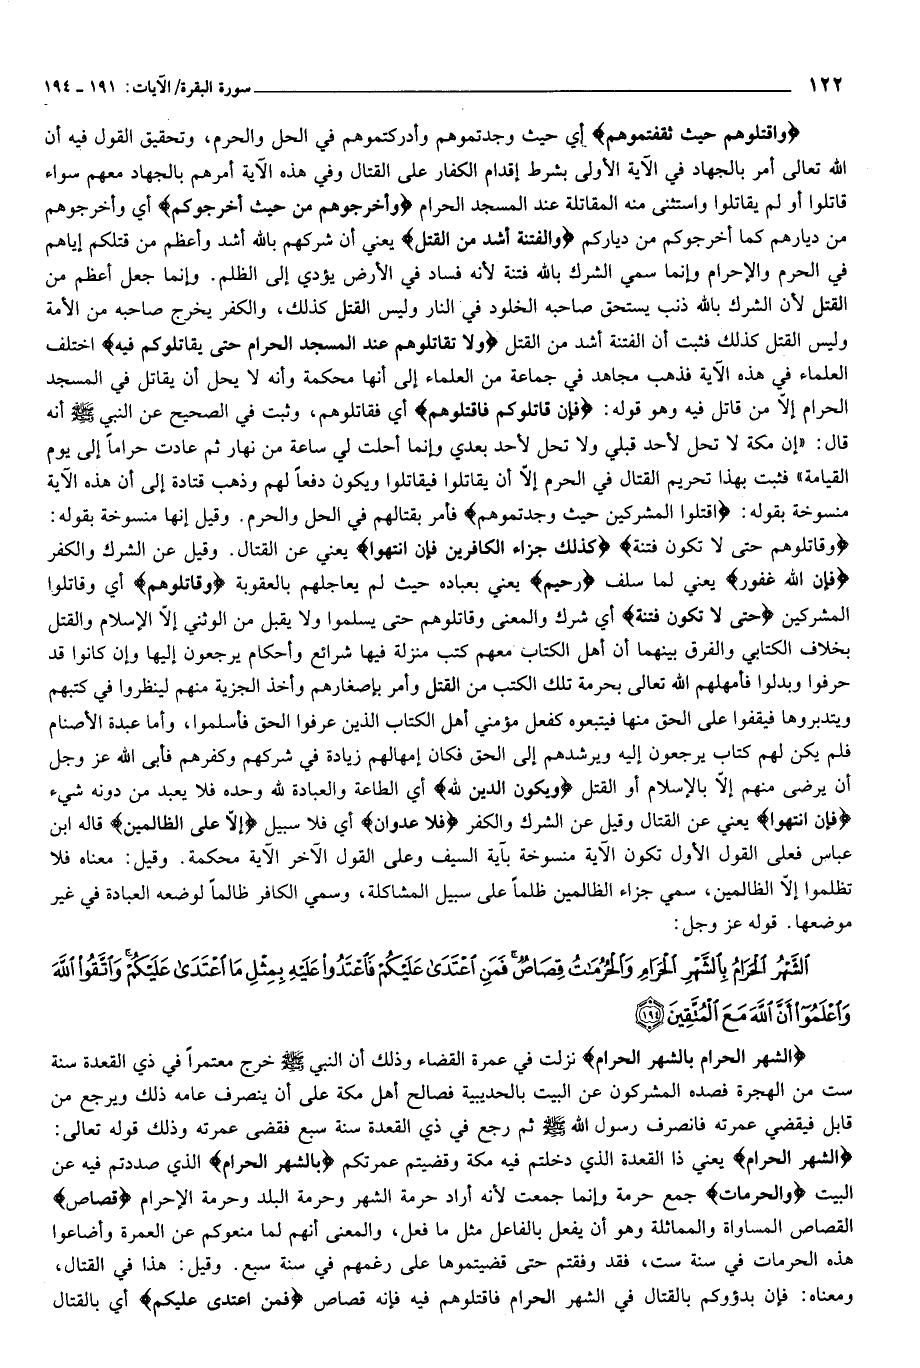 ١٢٢ سورة البقرة/ الآيات: ١٩١ ـ ١٩٤
﴿واقتلوهم حيث ثقفتموهم﴾ أي حيث وجدتموهم وأدركتموهم في الحل والحرم، وتحقيق القول فيه أن
الله تعالى أمر بالجهاد في الآية الأولى بشرط إقدام الكفار على القتال وفي هذه الآية أمرهم بالجهاد معهم سواء
قاتلوا أو لم يقاتلوا واستثنى منه المقاتلة عند المسجد الحرام ﴿وأخرجوهم من حيث أخرجوكم﴾ أي وأخرجوهم
من ديارهم كما أخرجوكم من دياركم ﴿والفتنة أشد من القتل﴾ يعني أن شركهم بالله أشد وأعظم من قتلكم إياهم
في الحرم والإحرام وإنما سمي الشرك بالله فتنة لأنه فساد في الأرض يؤدي إلى الظلم. وإنما جعل أعظم من
القتل لأن الشرك بالله ذنب يستحق صاحبه الخلود في النار وليس القتل كذلك، والكفر يخرج صاحبه من الأمة
وليس القتل كذلك فثبت أن الفتنة أشد من القتل ﴿ولا تقاتلوهم عند المسجد الحرام حتى يقاتلوكم فيه﴾ اختلف
العلماء في هذه الآية فذهب مجاهد في جماعة من العلماء إلى أنها محكمة وأنه لا يحل أن يقاتل في المسجد
الحرام إلّا من قاتل فيه وهو قوله: ﴿فإن قاتلوكم فاقتلوهم﴾ أي فقاتلوهم، وثبت في الصحيح عن النبي ﷺ أنه
قال: «إن مكة لا تحل لأحد قبلي ولا تحل لأحد بعدي وإنما أحلت لي ساعة من نهار ثم عادت حراماً إلى يوم
القيامة» فثبت بهذا تحريم القتال في الحرم إلّا أن يقاتلوا فيقاتلوا ويكون دفعاً لهم وذهب قتادة إلى أن هذه الآية
منسوخة بقوله: ﴿اقتلوا المشركين حيث وجدتموهم﴾ فأمر بقتالهم في الحل والحرم. وقيل إنها منسوخة بقوله:
﴿وقاتلوهم حتى لا تكون فتنة﴾ ﴿كذلك جزاء الكافرين فإن انتهوا﴾ يعني عن القتال. وقيل عن الشرك والكفر
﴿فإن الله غفور﴾ يعني لما سلف ﴿رحيم﴾ يعني بعباده حيث لم يعاجلهم بالعقوبة ﴿وقاتلوهم﴾ أي وقاتلوا
المشركين ﴿حتى لا تكون فتنة﴾ أي شرك والمعنى وقاتلوهم حتى يسلموا ولا يقبل من الوثني إلّا الإسلام والقتل
بخلاف الكتابي والفرق بينهما أن أهل الكتاب معهم كتب منزلة فيها شرائع وأحكام يرجعون إليها وإن كانوا قد
حرفوا وبدلوا فأمهلهم الله تعالى بحرمة تلك الكتب من القتل وأمر بإصغارهم وأخذ الجزية منهم لينظروا في كتبهم
ويتدبروها فيقفوا على الحق منها فيتبعوه كفعل مؤمني أهل الكتاب الذين عرفوا الحق فأسلموا، وأما عبدة الأصنام
فلم يكن لهم كتاب يرجعون إليه ويرشدهم إلى الحق فكان إمهالهم زيادة في شركهم وكفرهم فأبى الله عز وجل
أن يرضى منهم إلّا بالإسلام أو القتل ﴿ويكون الدين لله﴾ أي الطاعة والعبادة لله وحده فلا يعبد من دونه شيء
﴿فإن انتهوا﴾ يعني عن القتال وقيل عن الشرك والكفر ﴿فلا عدوان﴾ أي فلا سبيل ﴿إلّا على الظالمين﴾ قاله ابن
عباس فعلى القول الأول تكون الآية منسوخة بآية السيف وعلى القول الآخر الآية محكمة. وقيل: معناه فلا
تظلموا إلّا الظالمين، سمي جزاء الظالمين ظلماً على سبيل المشاكلة، وسمي الكافر ظالماً لوضعه العبادة في غير
موضعها. قوله عز وجل:
الشَّهْرُ الْحَرَامُ بِالشَّهْرِ الْحَرَامِ وَالْحُرُمَاتُ قِصَاصٌ ۚ فَمَنِ اعْتَدَىٰ عَلَيْكُمْ فَاعْتَدُوا عَلَيْهِ بِمِثْلِ مَا اعْتَدَىٰ عَلَيْكُمْ ۚ وَاتَّقُوا اللَّهَ
وَاعْلَمُوا أَنَّ اللَّهَ مَعَ الْمُتَّقِينَ ﴿١٩٤﴾
﴿الشهر الحرام بالشهر الحرام﴾ نزلت في عمرة القضاء وذلك أن النبي ﷺ خرج معتمراً في ذي القعدة سنة
ست من الهجرة فصده المشركون عن البيت بالحديبية فصالح أهل مكة على أن ينصرف عامه ذلك ويرجع من
قابل فيقضي عمرته فانصرف رسول الله ﷺ ثم رجع في ذي القعدة سنة سبع فقضى عمرته وذلك قوله تعالى:
﴿الشهر الحرام﴾ يعني ذا القعدة الذي دخلتم فيه مكة وقضيتم عمرتكم ﴿بالشهر الحرام﴾ الذي صددتم فيه عن
البيت ﴿والحرمات﴾ جمع حرمة وإنما جمعت لأنه أراد حرمة الشهر وحرمة البلد وحرمة الإحرام ﴿قصاص﴾
القصاص المساواة والمماثلة وهو أن يفعل بالفاعل مثل ما فعل، والمعنى أنهم لما منعوكم عن العمرة وأضاعوا
هذه الحرمات في سنة ست، فقد وفقتم حتى قضيتموها على رغمهم في سنة سبع. وقيل: هذا في القتال،
ومعناه: فإن بدؤوكم بالقتال في الشهر الحرام فاقتلوهم فيه فإنه قصاص ﴿فمن اعتدى عليكم﴾ أي بالقتال